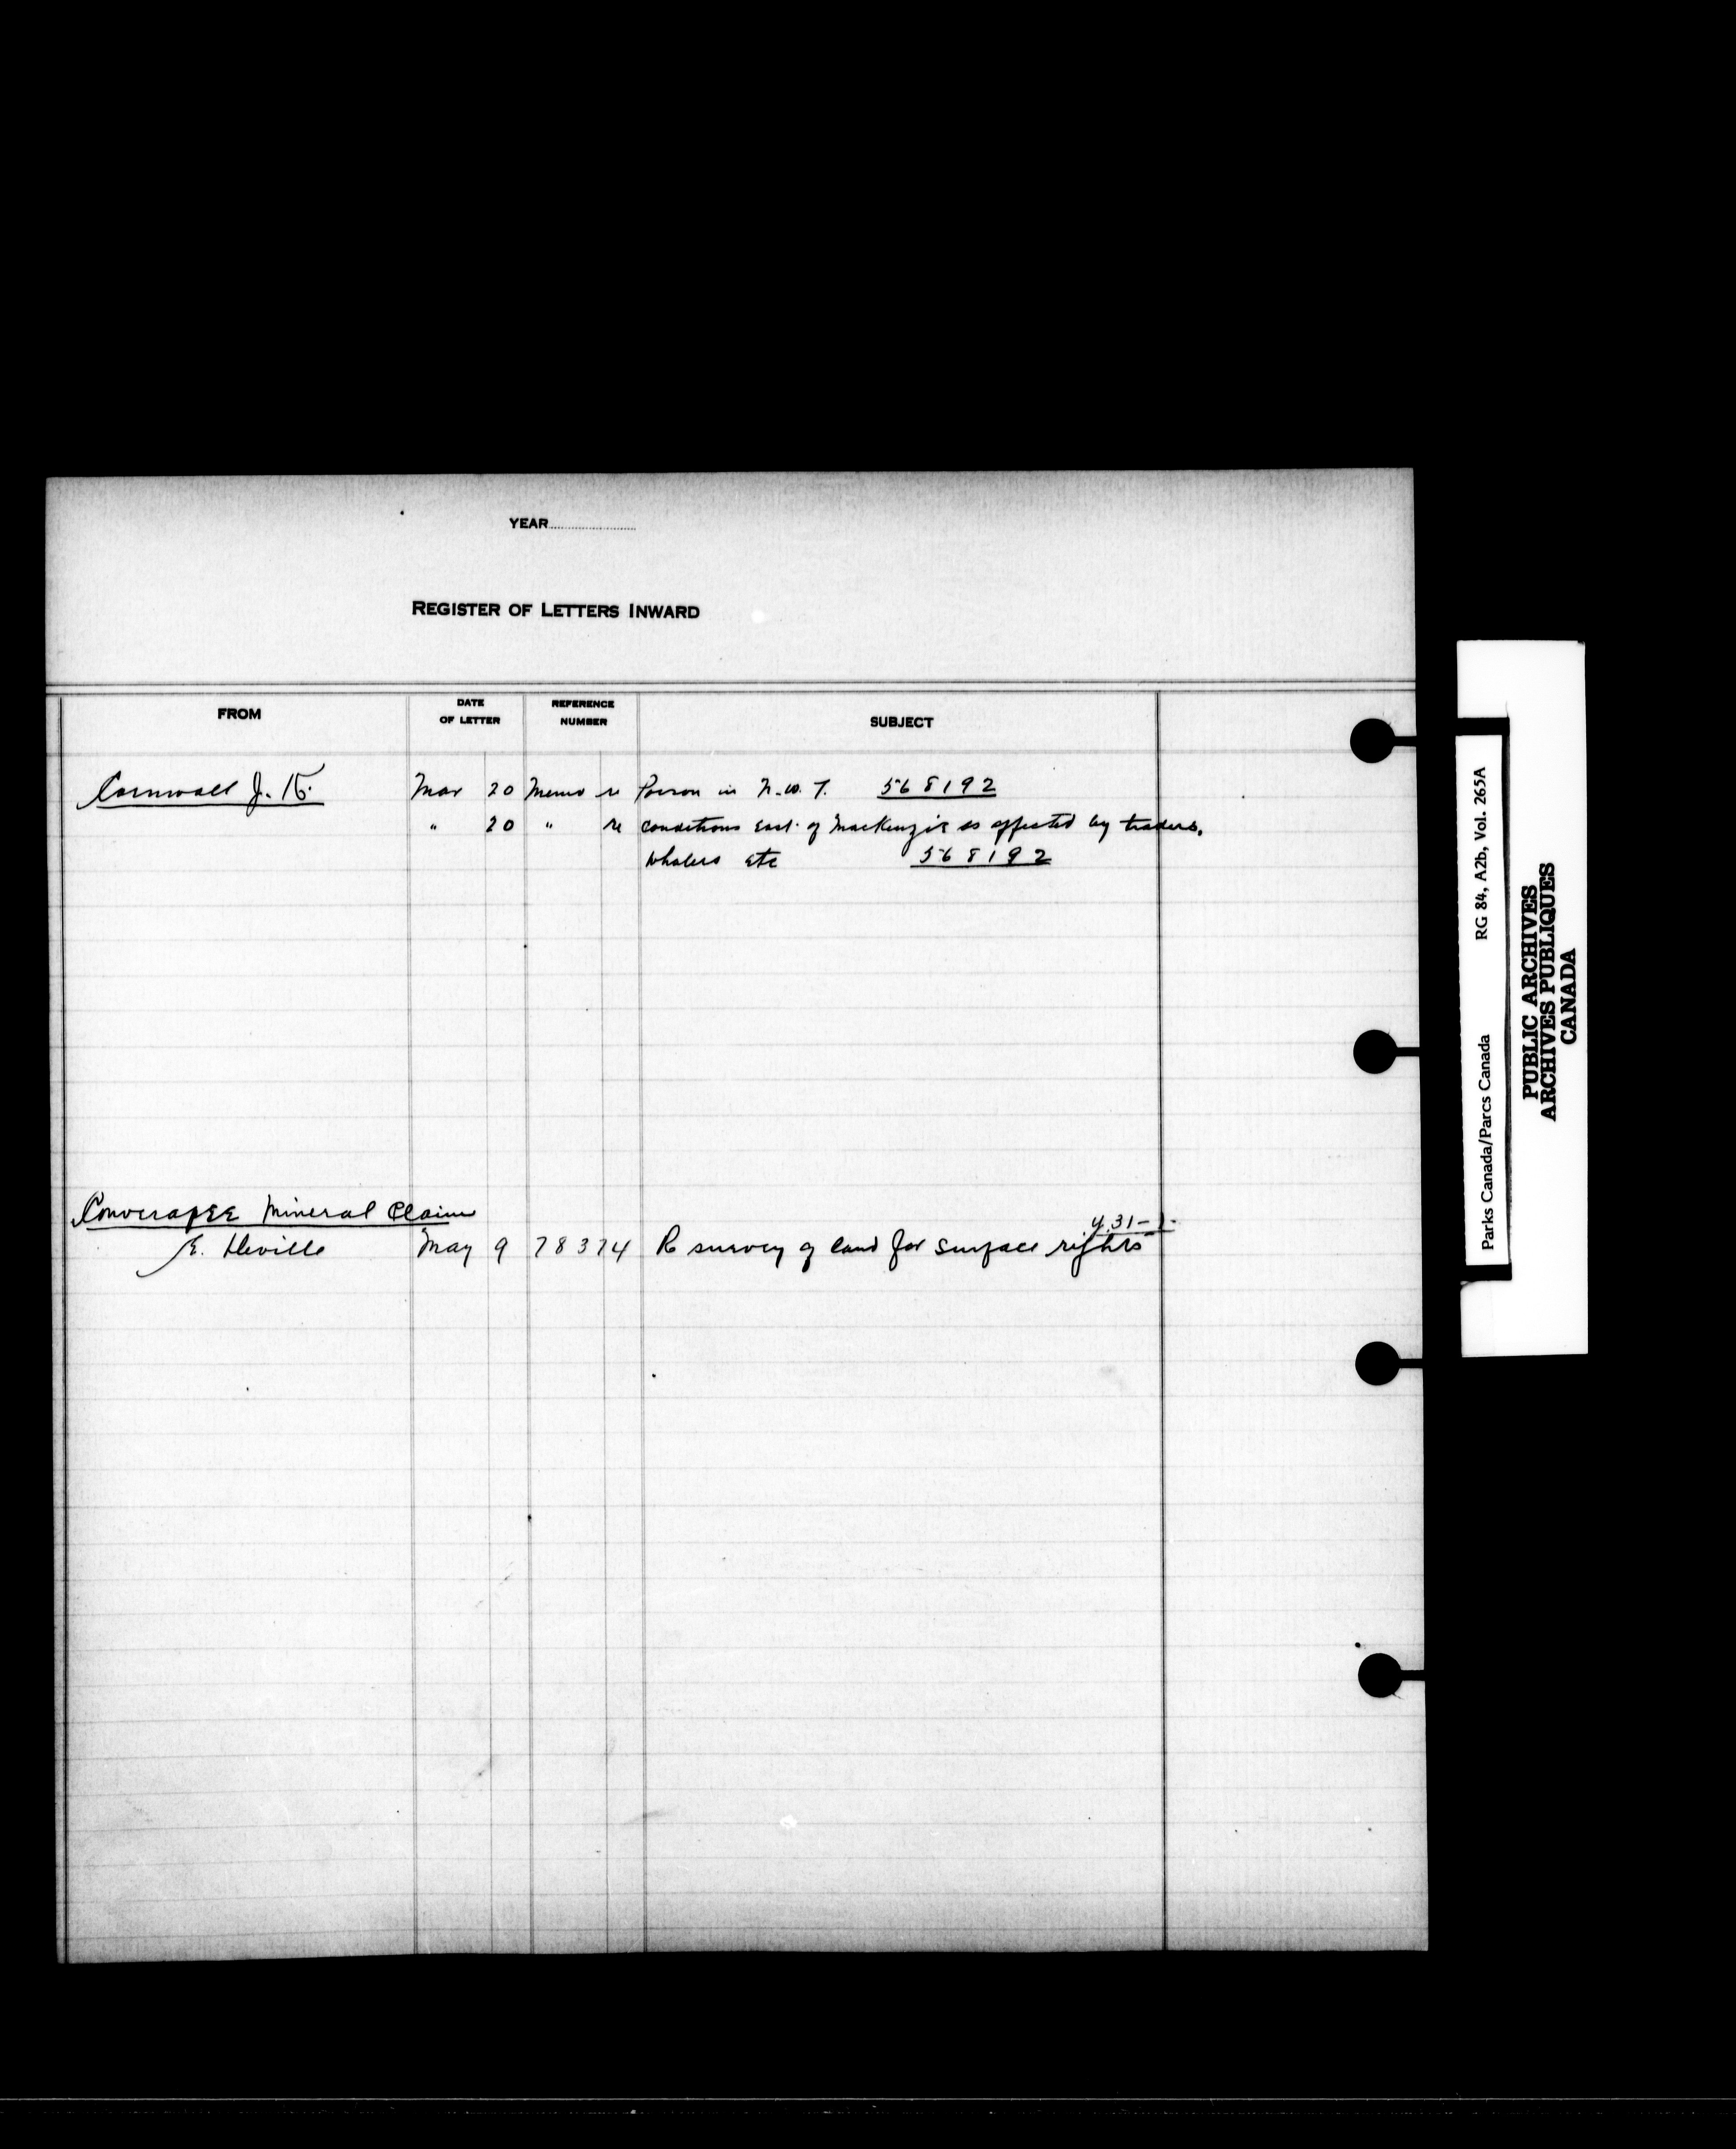 YEAR
REGISTER OF LETTERS INWARD
FROM DATE OF LETTER REFERENCE NUMBER SUBJECT
Cornwall J. K. Mar 20 Memo re Poison in N.W.T. 568192
" 20 " re conditions East of MacKenzie as affected by traders,
whalers etc 568192
Mineral Claim
Y.31-1-
E. Deville May 9 78374 Re survey of land for surface rights
Parks Canada/Parcs Canada RG 84, A2b, Vol. 265A
PUBLIC ARCHIVES
ARCHIVES PUBLIQUES
CANADA